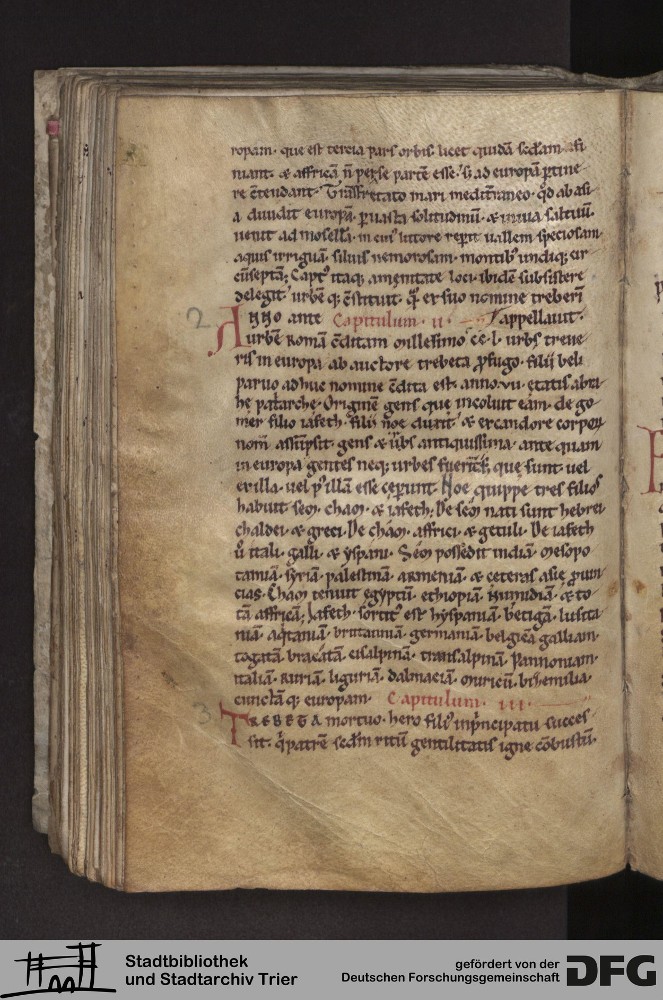 ropam. que est tercia pars orbis. licet quidā scdm asi
niant. & affricā n̄ per se partē esse. s; ad europā p̲tine
re c̄tendant. Transfretato mari medit̄raneo. qd̄ ab asi
a diuidit europā. p̲uasta solitudinū. & inuia saltuū.
uenit ad mosellā. in cui' littore rep̲it uallem speciosam.
aquis irriguā. siluis nemorosam. montib' undiq; cir
cūseptā; Capt' itaq; amenitate loci. ibidē subsistere
delegit. urbē q; c̄stituit. q̄ ex suo nomine treberī
2 ANNO ante Capitulum. ii. appellauit.
urbē Romā c̄ditam millesimo. cc̄. l. urbs treue
ris in europa ab auctore trebeta p̲fugo. filii beli
paruo adhuc nomine c̄dita est. anno. vii. etatis abra
he pat̄arche. Originē gens que incoluit eam. de go
mer filio iafeth. filii noe duxit. & ex candore corpor̄
nom̄ assūpsit. gens & urbs antiquissima. ante quam
in europa gentes neq; urbes fuerint. que sunt uel
ex illa. uel p' illā esse cep̲unt. Noe quippe tres filios
habuit sem. cham. & iafeth; De sem nati sunt hebrei
chaldei. & greci. De chām. affrici. & getuli. De iafeth
ů itali. galli. & yspani. Sem possedit indiā. mesopo
tamiā. syriā. palestinā. armeniā. & ceteras asie p̲uin
cias. Cham tenuit egyptū. ethiopiā. Numidiā. & to
tā affricā; Iafeth. sortit' est hyspaniā. betigā. lusita
niā. aq̇taniā. brittanniā. germaniā. belgicā galliam.
togatā. bracatā. cisalpinā. transalpinā. Pannoniam.
italiā. liguriā. dalmaciā.
cunctā q; europam. Capitulum. iii.
3 TREBETA mortuo. hero fili' in p̲ncipatu succes
sit. q̇ patrē scdm ritū gentilitatis igne cōbustū.
Stadtbibliothek
und Stadtarchiv Trier
gefördert von der
Deutschen Forschungsgemeinschaft
DFG